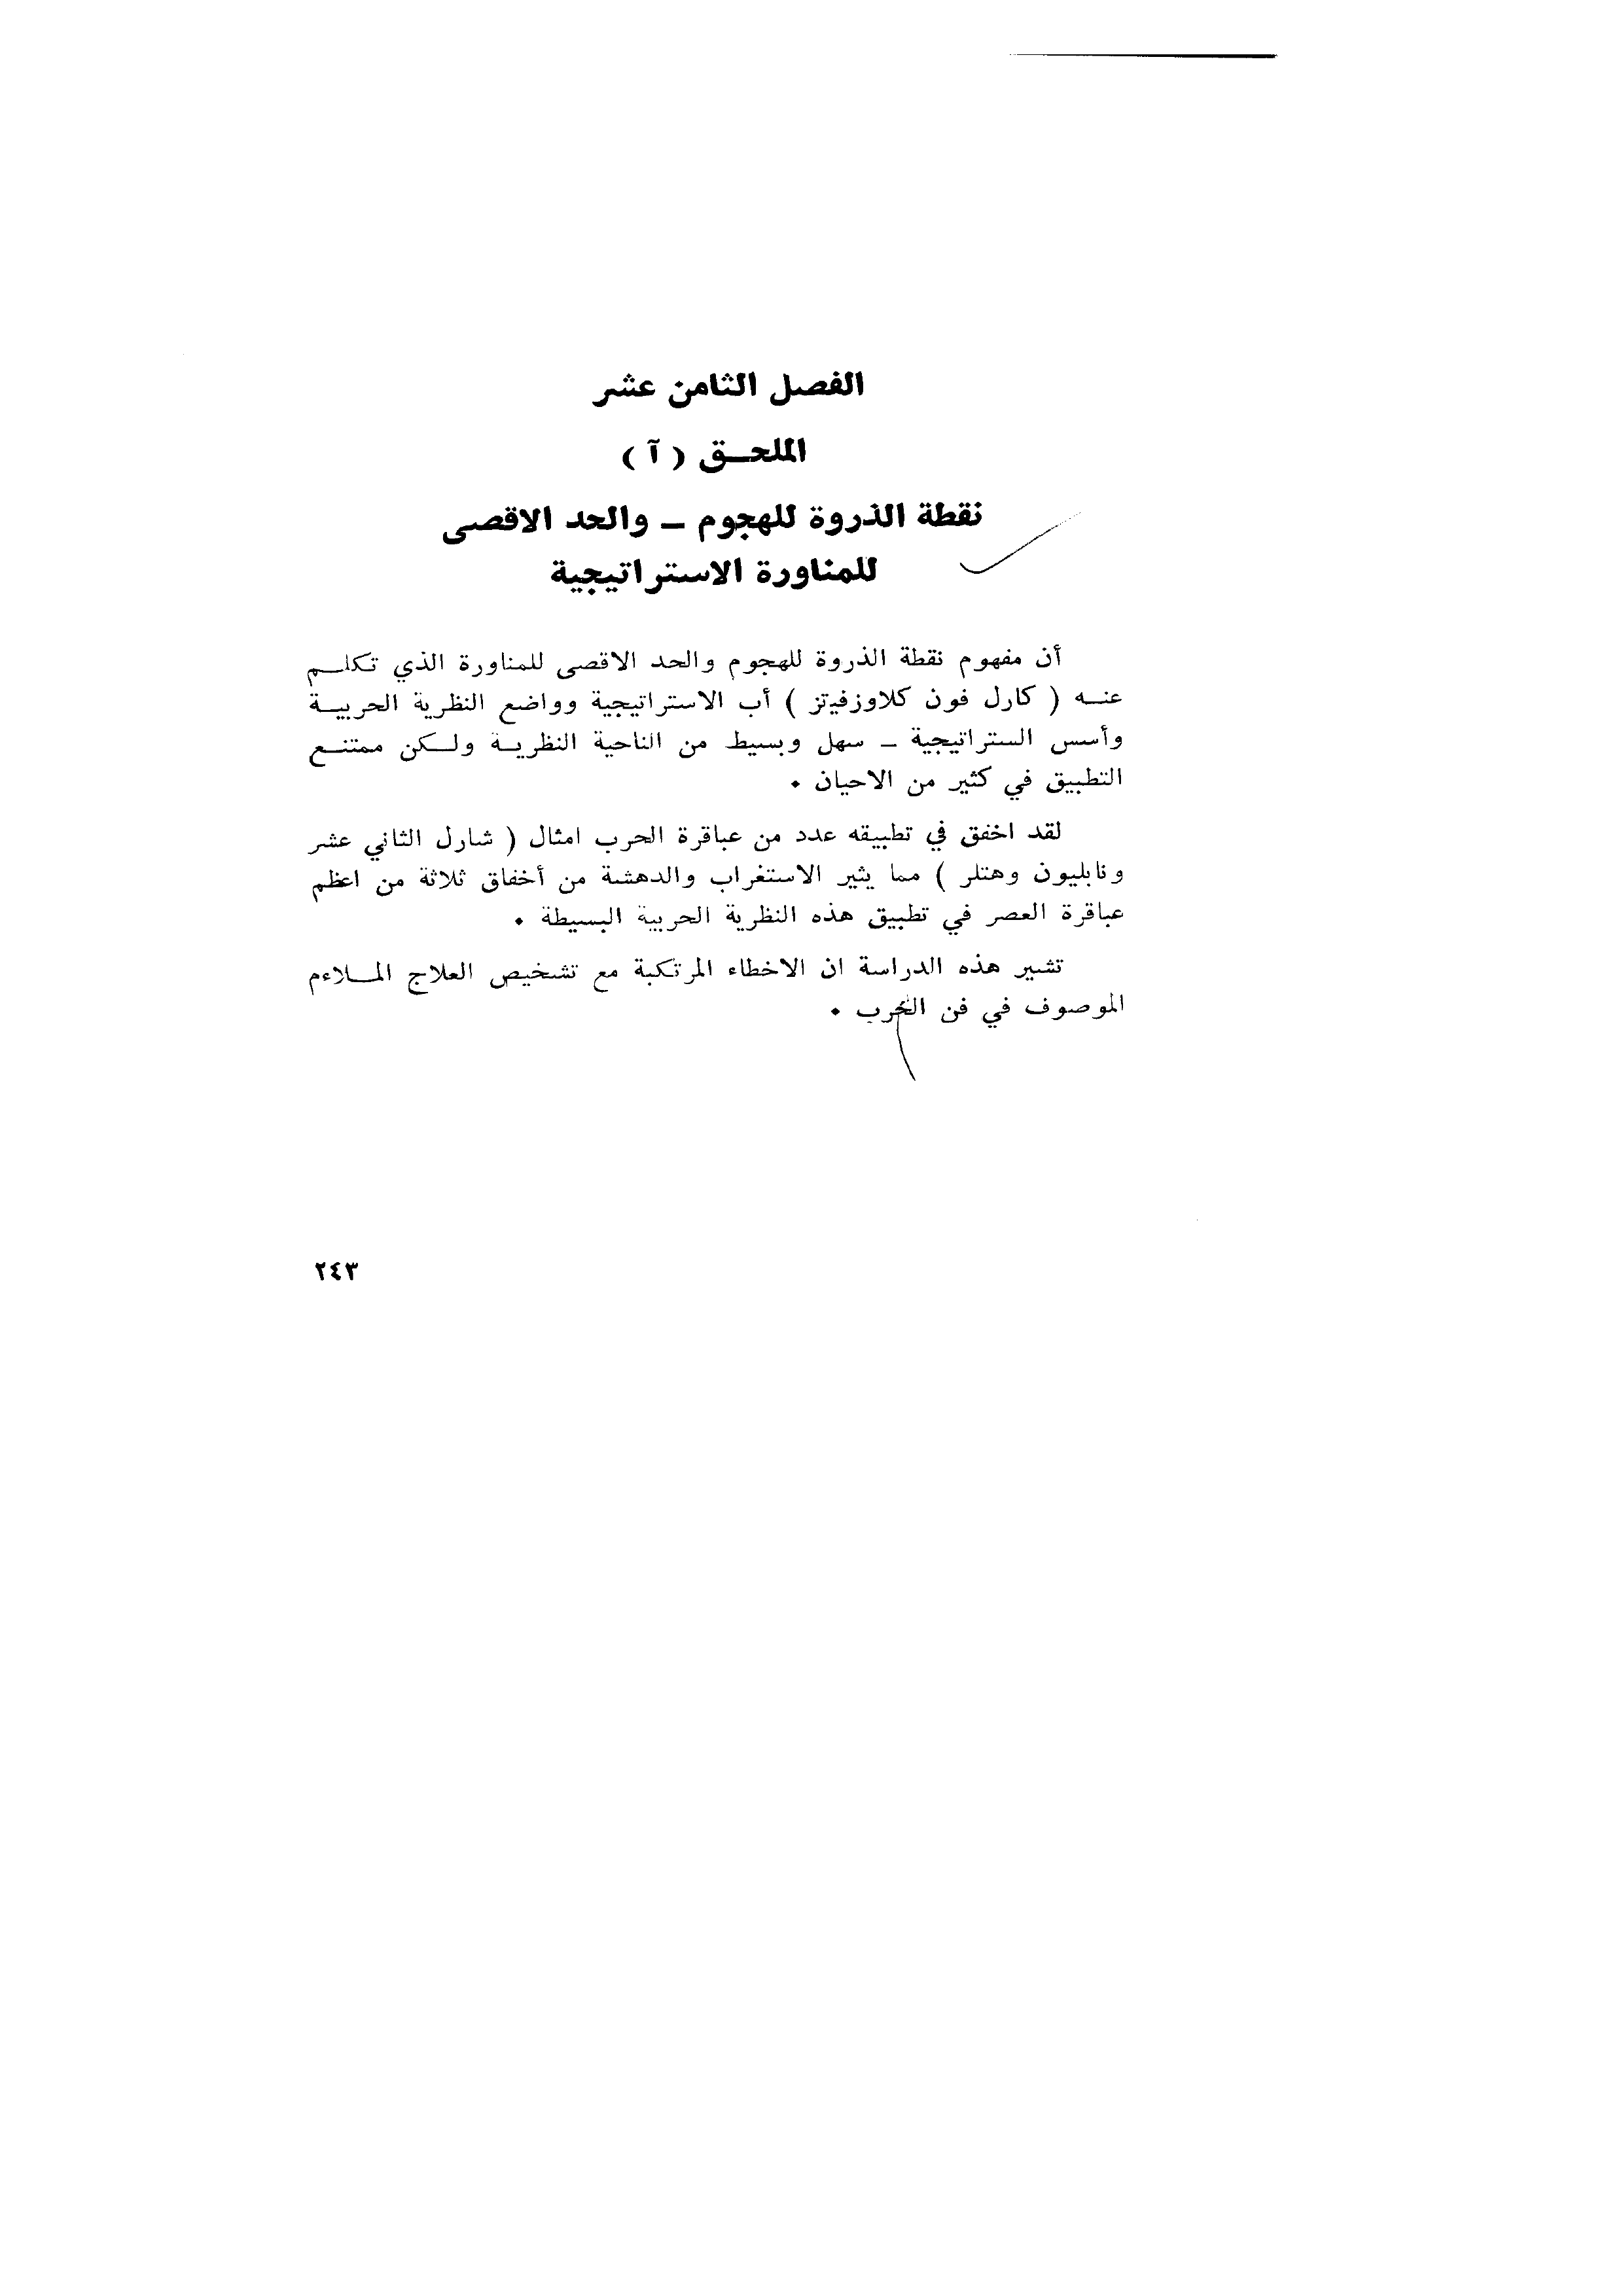 الفصل الثامن عشر
الملحق ( آ )
نقطة الذروة للهجوم ــ والحد الاقصى
للمناورة الاستراتيجية
أن مفهوم نقطة الذروة للهجوم والحد الاقصى للمناورة الذي تكلم
عنه ( كارل فون كلاوزفيتز ) أب الاستراتيجية وواضع النظرية الحربية
وأسس الستراتيجية ــ سهل وبسيط من الناحية النظرية ولكن ممتنع
التطبيق في كثير من الاحيان .
لقد اخفق في تطبيقه عدد من عباقرة الحرب امثال ( شارل الثاني عشر
ونابليون وهتلر ) مما يثير الاستغراب والدهشة من أخفاق ثلاثة من اعظم
عباقرة العصر في تطبيق هذه النظرية الحربية البسيطة .
تشير هذه الدراسة ان الاخطاء المرتكبة مع تشخيص العلاج الملاءم
الموصوف في فن الحرب .
٢٤٣